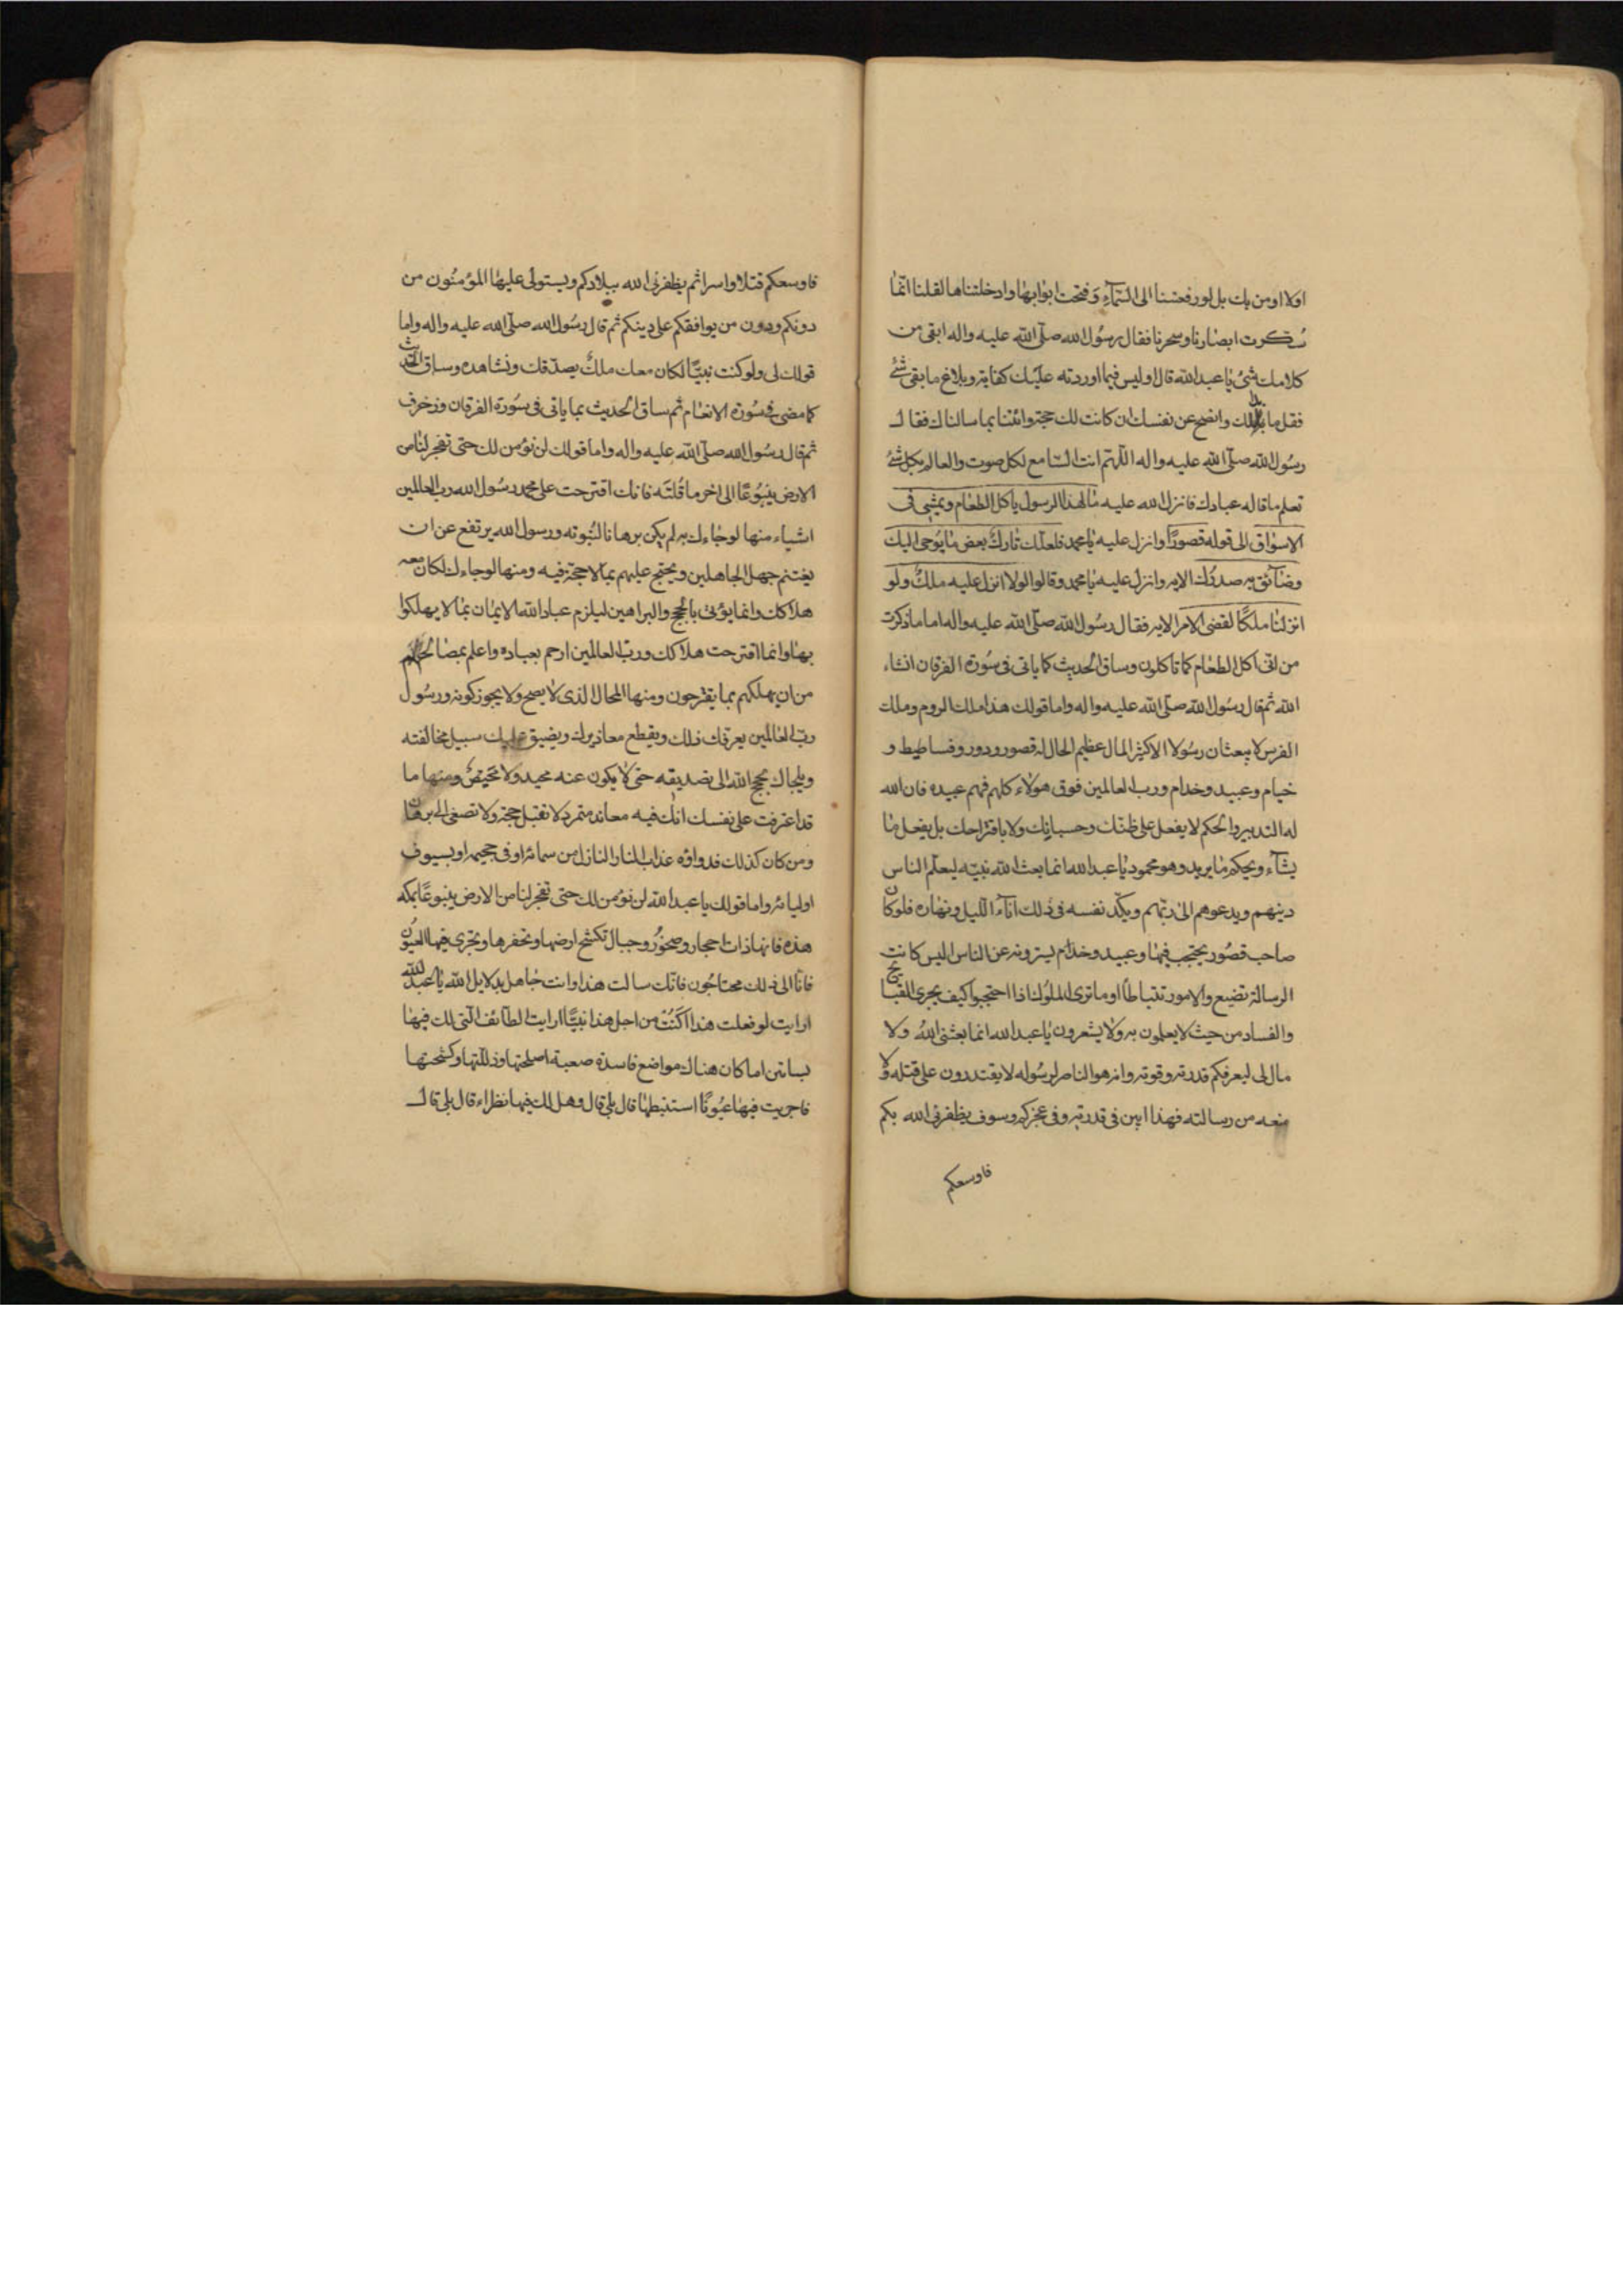 اولا اومن بك بل لو رفعتنا الى السّمآء و فتحت ابوابها وادخلتناها لقلنا انّما
سكّرت ابصارنا وسحرنا فقال رسُول الله صلّى الله عليه واله ابقى من
كلامك شئ يا عبد الله قال اوليس فيما اوردته عليك كفاية وبلاغ ما بقى شئ
فقل ما بدا لك وافصح عن نفسك ان كانت لك حجة وائتنا بما سالناك فقال
رسُول الله صلّى الله عليه واله اللّهم انت السّامع لكل صوت والعالم بكل شئ
تعلم ما قاله عبادك فانزل الله عليه مال هذا الرسول ياكل الطعام ويمشى فى
الاسواق الى قوله قصورًا وانزل عليه يا محمد فلعلّك تارك بعض ما يوحى اليك
وضآئق به صدرك الايه وانزل عليه يا محمد وقالوا لولا انزل عليه ملكٌ ولو
انزلنا ملكًا لقضى الامر الايه فقال رسُول الله صلّى الله عليه واله اما ما ذكرت
من انّى اكل الطعام كما تاكلون وساق الحديث كما ياتى فى سُورة الفرقان انشاء
الله ثم قال رسُول الله صلّى الله عليه واله واما قولك هذا ملك الروم وملك
الفرس لا يبعثان رسُولا الا كثير المال عظيم الحال له قصور ودور وفساطيط و
خيام وعبيد وخدام ورب العالمين فوق هولاء كلهم فهم عبيده فان الله
له التدبير والحكم لا يفعل على ظنّك وحسبانك ولا باقتراحك بل يفعل ما
يشآء ويحكم ما يريد وهو محمود يا عبد الله انما بعث الله نبيّه ليعلّم الناس
دينهم ويدعوهم الى ربّهم ويكدّ نفسه فى ذلك اناء اللّيل ونهاره فلو كان
صاحب قصُور يحتجب فيها وعبيد وخدام يسترونه عن الناس اليس كانت
الرسالة تضيع والامور تتباطأ اوما ترى الملُوك اذا احتجبوا كيف يجرى القبايح
والفساد من حيث لا يعلمون به ولا يشعرون يا عبد الله انما بعثنى الله ولا
مال لى ليعرفكم قدرته وقوته وانه هو الناصر لرسُوله لا يقتدرون على قتله ولا
منعه من رسالته فهذا ابين فى قدرته وفى عجزكم وسوف يظفرنى الله بكم
فاوسعكم
فاوسعكم قتلا واسرا ثم يظفرنى الله ببلادكم ويستولى عليها المؤمنُون من
دونكم ودون من يوافقكم على دينكم ثم قال رسُول الله صلّى الله عليه واله واما
قولك لى ولو كنت نبيّا لكان معك ملكٌ يصدّقك ونشاهده وساق الحديث
كما مضى فى سُورة الانعام ثم ساق الحديث بما ياتى فى سُورة الفرقان وزخرف
ثم قال رسُول الله صلّى الله عليه واله واما قولك لن نؤمن لك حتى تفجر لنا من
الارض ينبُوعًا الى اخر ما قُلتَه فانك اقترحت على محمد رسُول الله رب العالمين
اشياء منها لو جاءك به لم يكن برهانا لنُبوته ورسول الله يرتفع عن ان
يغتنم جهل الجاهلين ويحتج عليهم بما لا حجة فيه ومنها لو جاءك لكان معه
هلاكك وانما يؤتى بالحجج والبراهين ليلزم عباد الله الايمان بما لا يهلكوا
بها وانما اقترحت هلاكك وربّ العالمين ارحم بعباده واعلم بمصالحهم
من ان يهلكهم بما يقترحون ومنها المحال الذى لا يصح ولا يجوز كونه ورسُول
ربّ العالمين يعرفك ذلك ويقطع معاذيرك ويضيق عليك سبيل مخالفته
ويلجاك بحجج الله الى تصديقه حتى لا يكون عنه محيد ولا محيص ومنها ما
قد اعترفت على نفسك انّك فيه معاند متمرد لا تقبل حجة ولا تصغى الى برهان
ومن كان كذلك فدواؤه عذاب النار النازل من سمائه او فى جحيمه او بسيوف
اوليائه واما قولك يا عبد الله لن نؤمن لك حتى تفجر لنا من الارض ينبوعًا بمكه
هذه فانها ذات احجار وصخُور وجبال تكشح ارضها وتحفرها وتجرى فيها العيُون
فانّا الى ذلك محتاجُون فانّك سالت هذا وانت جاهل بدلايل الله يا عبد الله
ارايت لو فعلت هذا اكُنْتُ من اجل هذا نبيًّا ارايت الطآئف الّتى لك فيها
بساتين اما كان هناك مواضع فاسدة صعبة اصلحتها وذلّلتها وكشحتها
فاجريت فيها عيُونًا استنبطها قال بلى قال وهل لك فيها نظراء قال بلى قال